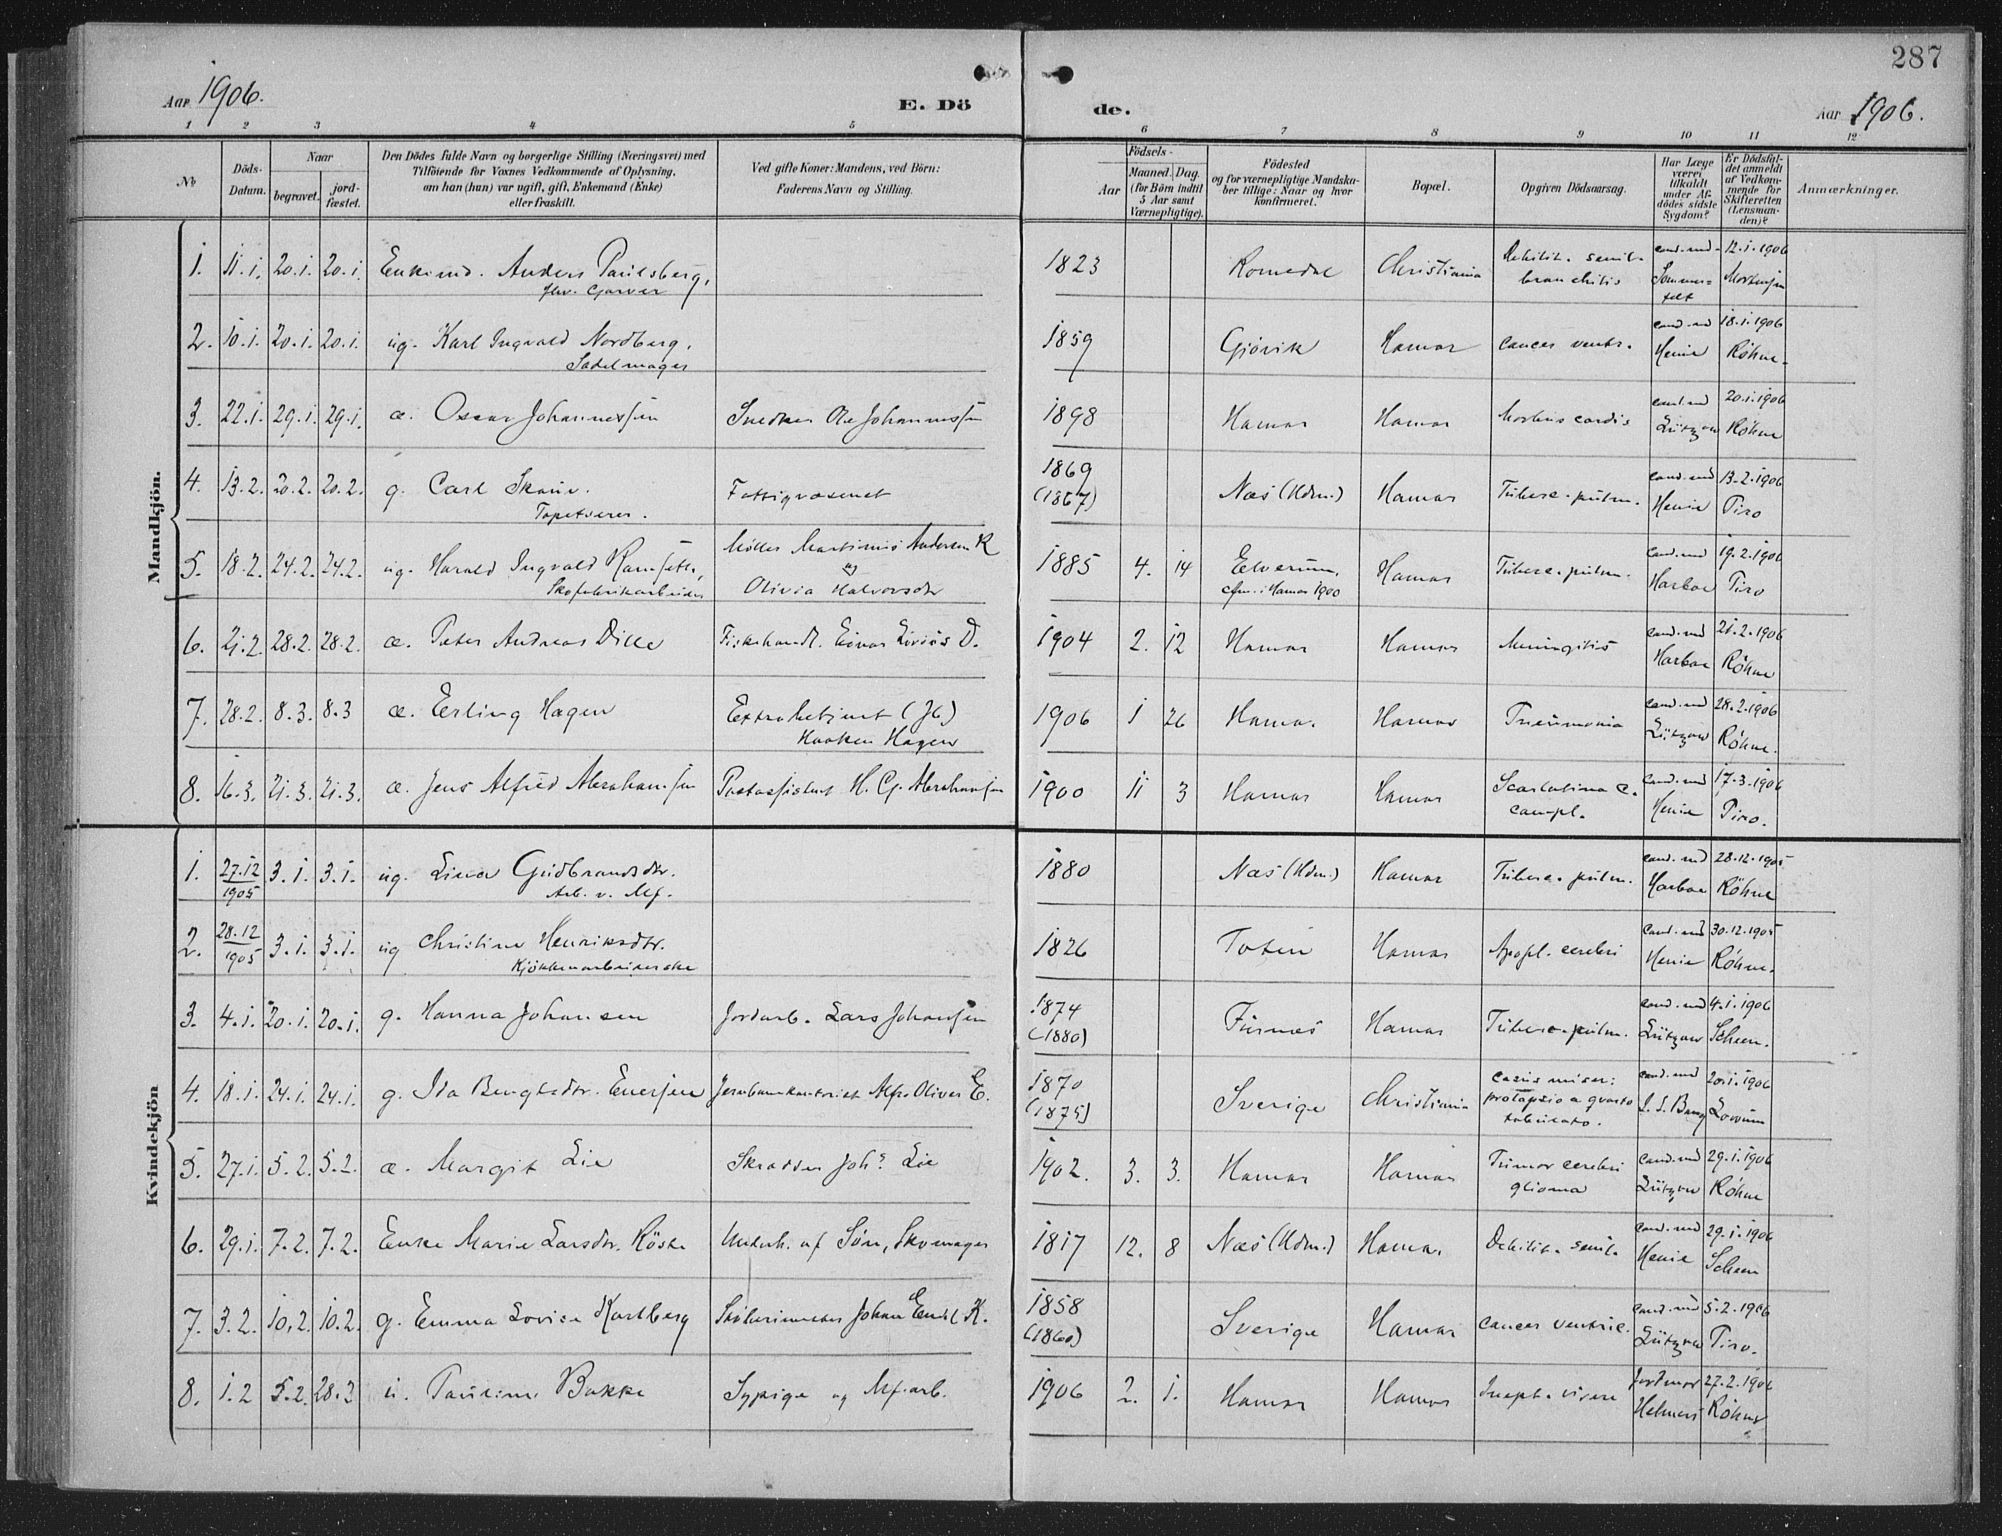 287
Aar 1906.
E. Dö
de.
Aar 1906.
1 2 3 4 5 6 7 8 9 10 11 12
No
Döds-Datum.
Naar
begravet.
jord-fæstet.
Den Dödes fulde Navn og borgerlige Stilling (Næringsvei) med
Tilföiende for Voxnes Vedkommende af Oplysning,
om han (hun) var ugift, gift, Enkemand (Enke)
eller fraskilt.
Ved gifte Koner: Mandens, ved Börn:
Faderens Navn og Stilling.
Födsels-
Aar
Maaned. Dag.
(for Börn indtil
5 Aar samt
Værnepligtige).
Födested
og for værnepligtige Mandska-
ber tillige: Naar og hvor
konfirmeret.
Bopæl.
Opgiven Dödsaarsag.
Har Læge
været
tilkaldt
under Af-
dödes sidste
Sygdom?
Er Dödsfal-
det anmeldt
af Vedkom-
mende for
Skifteretten
(Lensman-
den)?
Anmærkninger.
Mandkjön.
1. 11.1. 20.1. 20.1. Enkemd. Anders Paulsberg, fhv. Garver 1823 Romedal Christiania Debilit. senil. bronchitis cand. med. Sommerfelt 12.1.1906 Mortensen
2. 10.1. 20.1. 20.1. ug. Karl Ingvald Nordberg, Sadelmager 1859 Gjövik Hamar cancer ventr. cand. med Henie 18.1.1906 Röhne.
3. 22.1. 29.1. 29.1. æ. Oscar Johannessen Snedker Ole Johannessen 1898 Hamar Hamar Morbus cordis cand. med Lützow 20.1.1906 Röhne
4. 13.2. 20.2. 20.2. g. Carl Skaue. Tapetserer. Fattigvæsenet 1869 (1867) Næs (Hdm.) Hamar Tuberc. pulm. cand. med Henie 13.2.1906 Tiro
5. 18.2. 24.2. 24.2. ug. Harald Ingvald Ramseth, Skofabrikarbeider Möller Martinius Andersen R og Olivia Halvorsdtr 1885 4. 14 Elverum, cfm. i Hamar 1900 Hamar Tuberc. pulm. cand. med Harboe 19.2.1906 Tiro
6. 21.2. 28.2. 28.2. æ. Peter Andreas Dille Fiskehandl. Einar Livius D. 1904 2. 12 Hamar Hamar Meningitis cand. med Harboe 21.2.1906 Röhne
7. 28.2. 8.3. 8.3 æ. Erling Hagen Extrabetjent (Jb) Haaken Hagen 1906 1 26 Hamar. Hamar Pneumonia cand. med Lützow 28.2.1906 Röhne.
8. 16.3. 21.3. 21.3. æ. Jens Alfred Abrahamsen Postassistent H. G. Abrahamsen 1900 11 3 Hamar Hamar Scarlatina c. compl. cand. med Henie 17.3.1906 Tiro.
Kvindekjön
1. 27.12 1905 3.1. 3.1. ug. Lina Gudbrandsdtr. Arb. v. Mf. 1880 Næs (Hdm.) Hamar Tuberc. pulm. cand. med Harboe 28.12.1905 Röhne
2. 28.12 1905 3.1. 3.1. ug Christine Henriksdtr. Kjökkenarbeiderske 1826 Toten Hamar Apopl. cerebri cand. med Henie 30.12.1905 Röhne.
3. 4.1. 20.1. 20.1. g. Hanna Johansen Jordarb. Lars Johansen 1874 (1880) Furnes Hamar Tuberc. pulm. cand. med Lützow 4.1.1906 Scheen.
4. 18.1. 24.1. 24.1. g. Ida Bengtsdtr. Enersen Alf Oliver E. 1870 (1875) Sverige Christiania casus miser: a quarto tabulato. cand. med 20.1.1906
5. 27.1. 5.2. 5.2. æ. Margit Lie Skrædder Johs. Lie 1902. 3. 3. Hamar Hamar Tumor cerebri glioma cand. med Lützow 29.1.1906 Röhne
6. 29.1. 7.2. 7.2. Enke Marie Larsdtr. Röste Underh. af Sön, Skomager 1817 12. 8 Næs (Hdm.) Hamar. Debilit. senil. cand. med Henie 29.1.1906 Scheen
7. 3.2. 10.2. 10.2. g. Emma Lovise Karlberg Johan Emil K. 1858 (1860) Sverige Hamar cancer ventric. cand. med Lützow 5.2.1906 Tiro.
8. 1.2 5.2. 28.2 u. Pauline Bakke Sypige og Mf. arb. 1906 2. 1. Hamar Hamar Jordmor 27.2.1906 Röhne